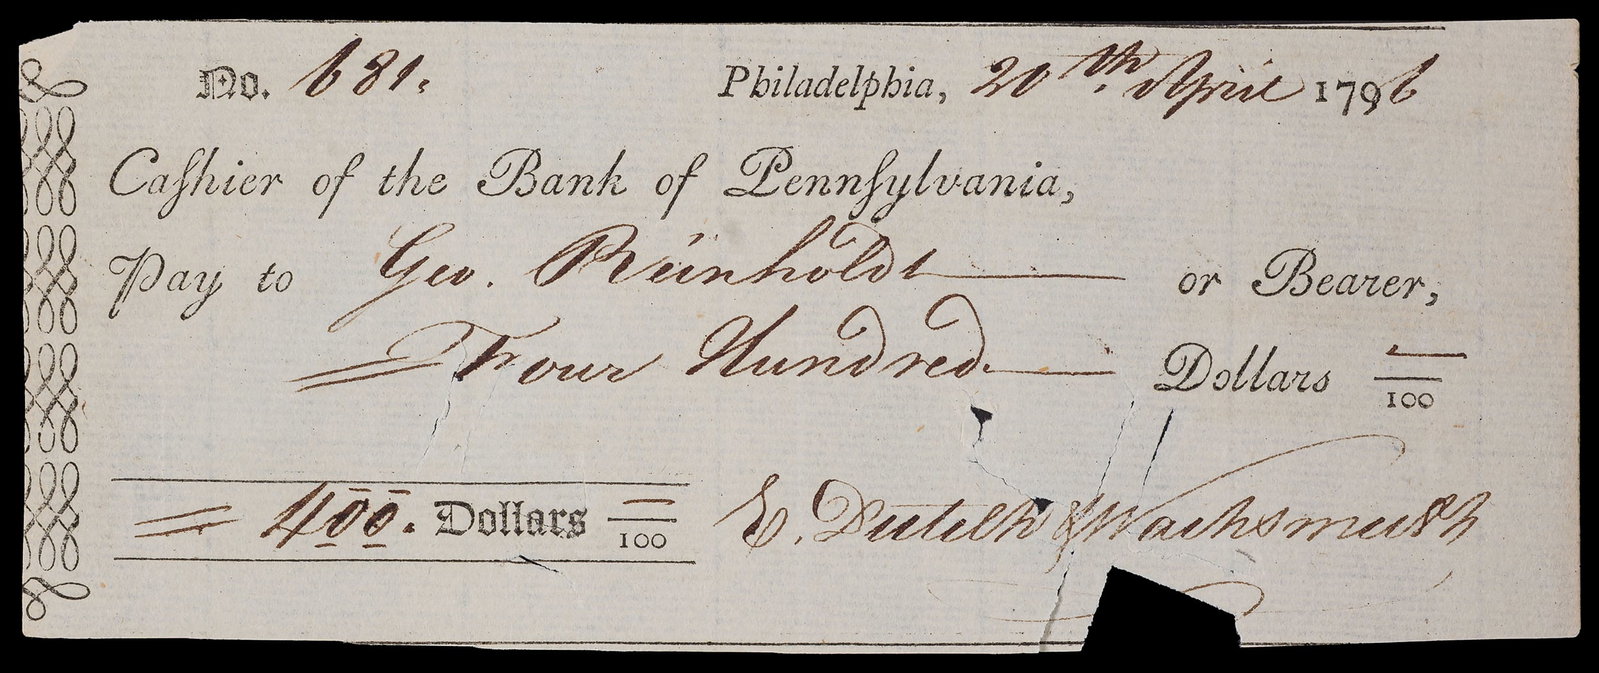 No. 681. Philadelphia, 20th. April 1796
Caſhier of the Bank of Pennſylvania,
Pay to Geo. Reinholdt or Bearer,
Four Hundred Dollars /100
400. Dollars /100 E. Dutilh & Wachsmuth